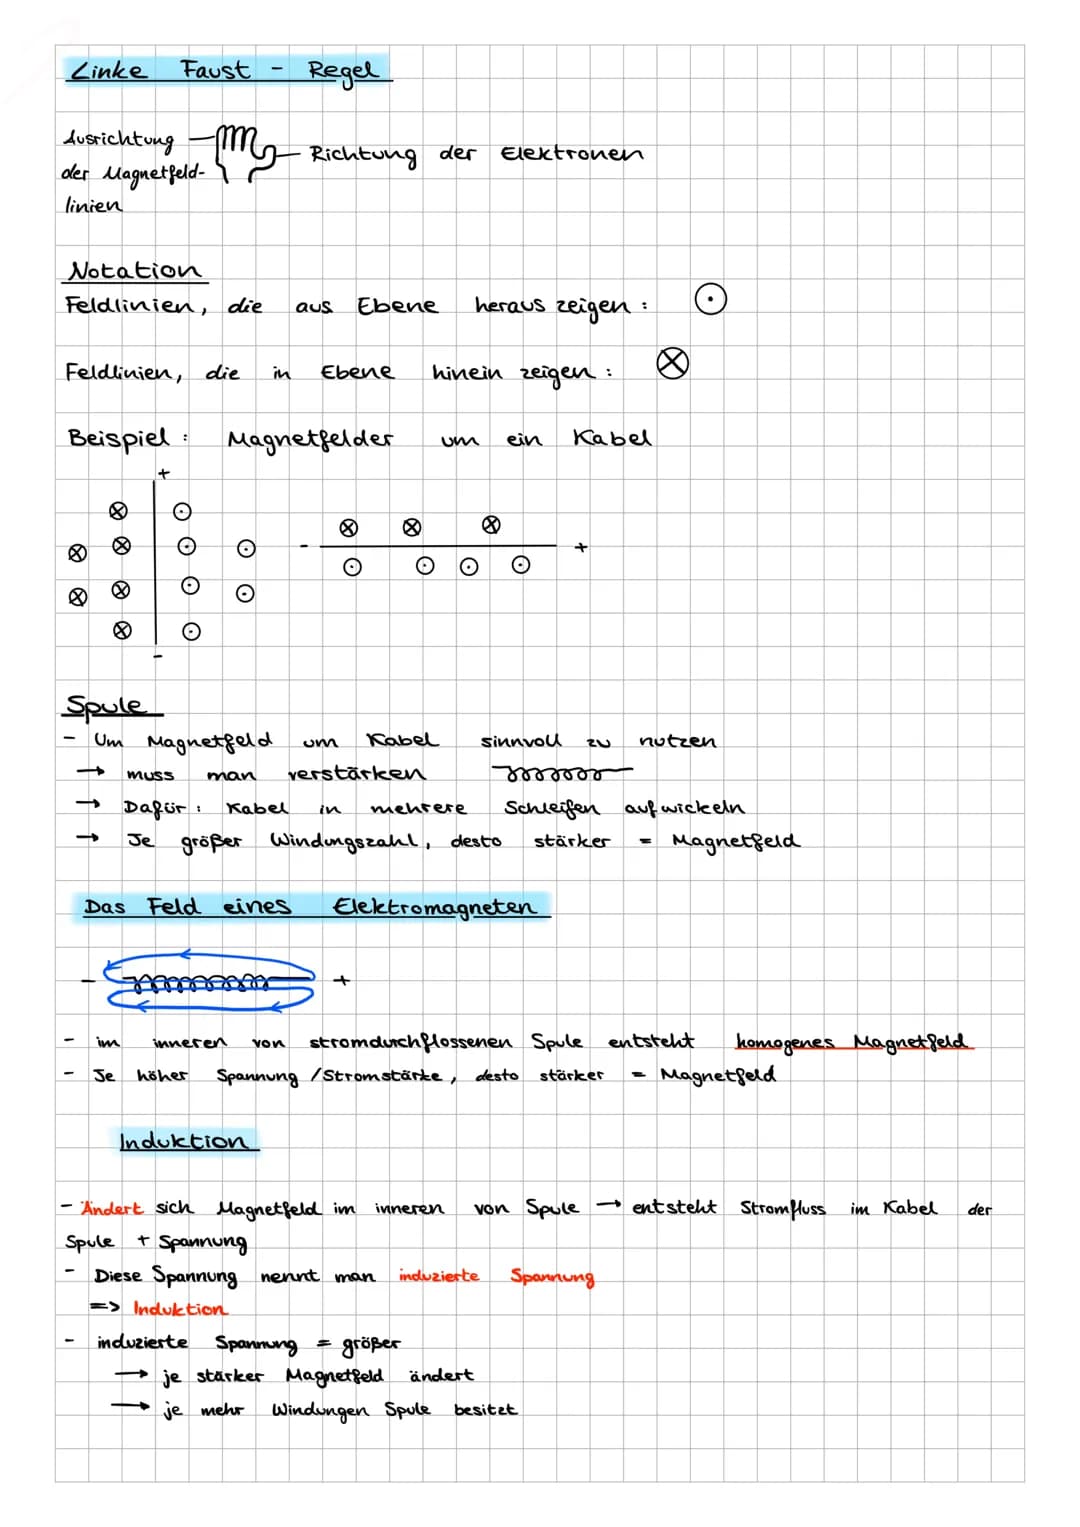 Linke Faust - Regel
Ausrichtung
der Magnetfeld-
linien
Richtung der Elektronen
Notation
Feldlinien, die aus Ebene heraus zeigen : ⊙
Feldlinien, die in Ebene hinein zeigen : ⊗
Beispiel : Magnetfelder um ein Kabel
+
-
- +
Spule
- Um Magnetfeld um Kabel sinnvoll zu nutzen
→ muss man verstärken
→ Dafür : Kabel in mehrere Schleifen aufwickeln
→ Je größer Windungszahl, desto stärker = Magnetfeld
Das Feld eines Elektromagneten
- +
- im inneren von stromdurchflossenen Spule entsteht homogenes Magnetfeld
- Je höher Spannung /Stromstärke, desto stärker = Magnetfeld
Induktion
- Ändert sich Magnetfeld im inneren von Spule → entsteht Stromfluss im Kabel der
Spule + Spannung
- Diese Spannung nennt man induzierte Spannung
=> Induktion
- induzierte Spannung = größer
→ je stärker Magnetfeld ändert
→ je mehr Windungen Spule besitzt